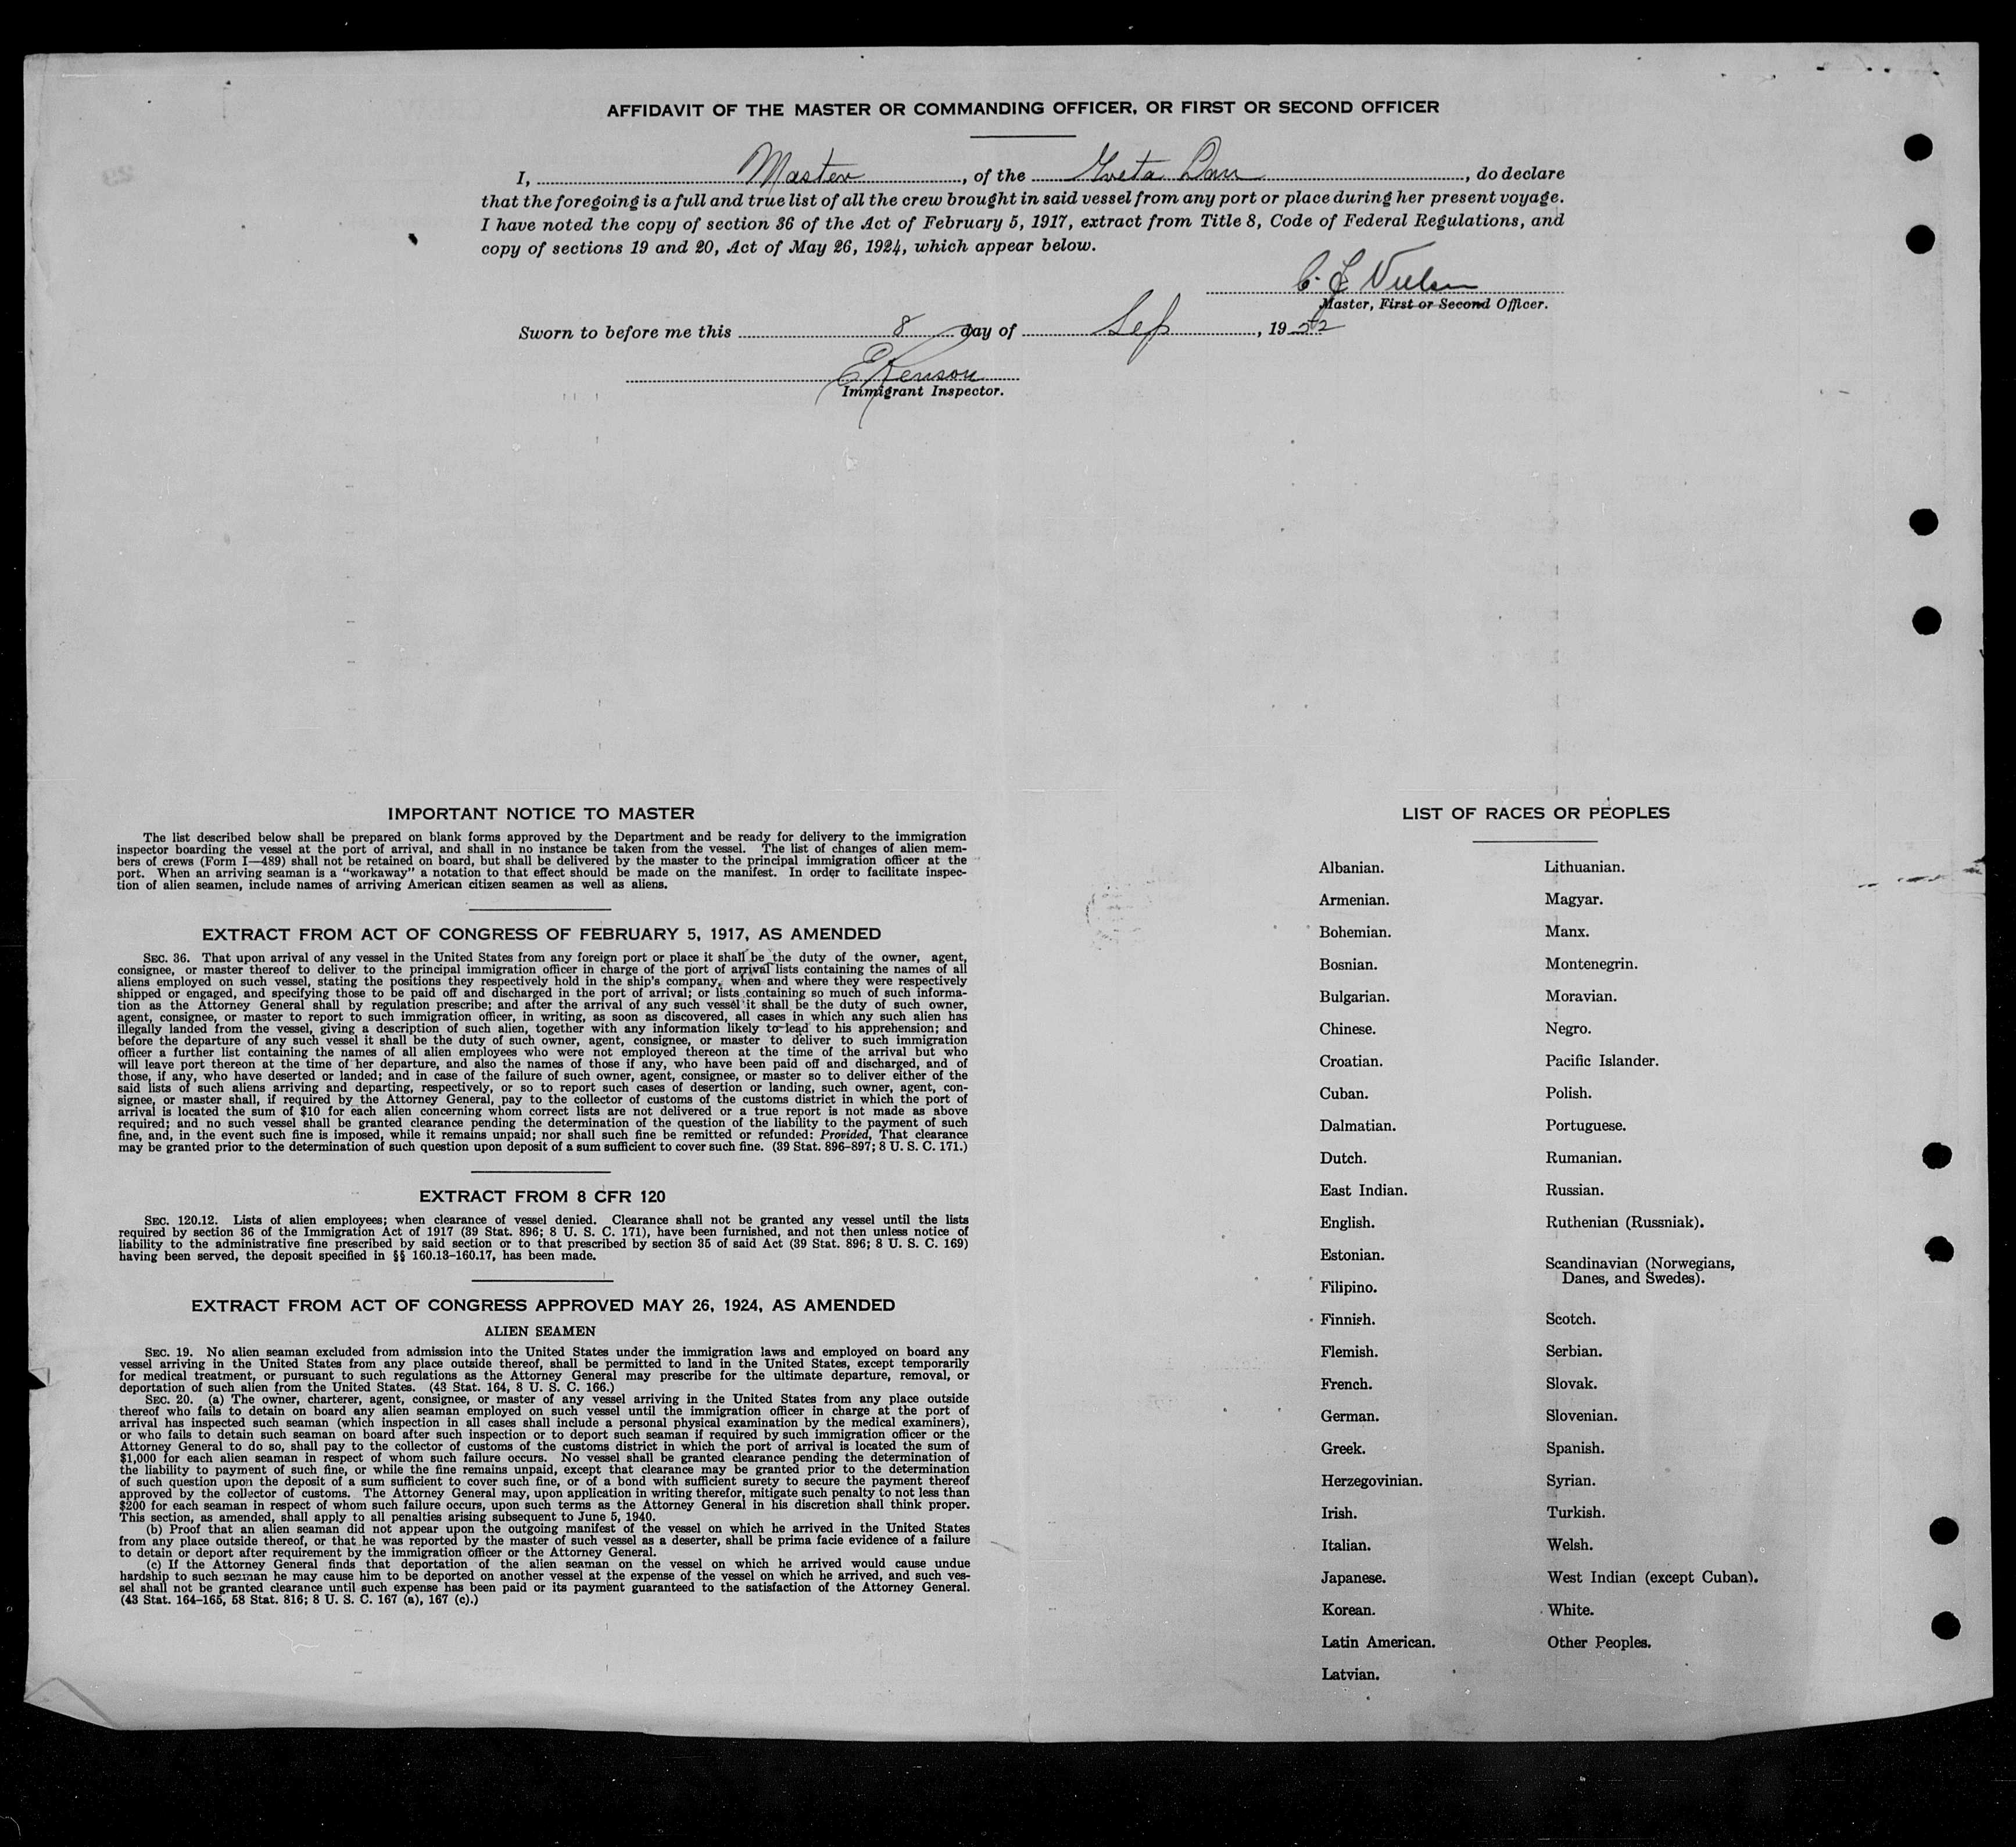 AFFIDAVIT OF THE MASTER OR COMMANDING OFFICER, OR FIRST OR SECOND OFFICER
I, Master, of the Greta Dan, do declare
that the foregoing is a full and true list of all the crew brought in said vessel from any port or place during her present voyage.
I have noted the copy of section 36 of the Act of February 5, 1917, extract from Title 8, Code of Federal Regulations, and
copy of sections 19 and 20, Act of May 26, 1924, which appear below.
Master, First or Second Officer.
Sworn to before me this 8 day of Sep, 1952
Immigrant Inspector.
IMPORTANT NOTICE TO MASTER
The list described below shall be prepared on blank forms approved by the Department and be ready for delivery to the immigration
inspector boarding the vessel at the port of arrival, and shall in no instance be taken from the vessel. The list of changes of alien mem-
bers of crews (Form I—489) shall not be retained on board, but shall be delivered by the master to the principal immigration officer at the
port. When an arriving seaman is a "workaway" a notation to that effect should be made on the manifest. In order to facilitate inspec-
tion of alien seamen, include names of arriving American citizen seamen as well as aliens.
EXTRACT FROM ACT OF CONGRESS OF FEBRUARY 5, 1917, AS AMENDED
SEC. 36. That upon arrival of any vessel in the United States from any foreign port or place it shall be the duty of the owner, agent,
consignee, or master thereof to deliver to the principal immigration officer in charge of the port of arrival lists containing the names of all
aliens employed on such vessel, stating the positions they respectively hold in the ship's company, when and where they were respectively
shipped or engaged, and specifying those to be paid off and discharged in the port of arrival; or lists containing so much of such informa-
tion as the Attorney General shall by regulation prescribe; and after the arrival of any such vessel it shall be the duty of such owner,
agent, consignee, or master to report to such immigration officer, in writing, as soon as discovered, all cases in which any such alien has
illegally landed from the vessel, giving a description of such alien, together with any information likely to lead to his apprehension; and
before the departure of any such vessel it shall be the duty of such owner, agent, consignee, or master to deliver to such immigration
officer a further list containing the names of all alien employees who were not employed thereon at the time of the arrival but who
will leave port thereon at the time of her departure, and also the names of those if any, who have been paid off and discharged, and of
those, if any, who have deserted or landed; and in case of the failure of such owner, agent, consignee, or master so to deliver either of the
said lists of such aliens arriving and departing, respectively, or so to report such cases of desertion or landing, such owner, agent, con-
signee, or master shall, if required by the Attorney General, pay to the collector of customs of the customs district in which the port of
arrival is located the sum of $10 for each alien concerning whom correct lists are not delivered or a true report is not made as above
required; and no such vessel shall be granted clearance pending the determination of the question of the liability to the payment of such
fine, and, in the event such fine is imposed, while it remains unpaid; nor shall such fine be remitted or refunded: Provided, That clearance
may be granted prior to the determination of such question upon deposit of a sum sufficient to cover such fine. (39 Stat. 896–897; 8 U. S. C. 171.)
EXTRACT FROM 8 CFR 120
SEC. 120.12. Lists of alien employees; when clearance of vessel denied. Clearance shall not be granted any vessel until the lists
required by section 36 of the Immigration Act of 1917 (39 Stat. 896; 8 U. S. C. 171), have been furnished, and not then unless notice of
liability to the administrative fine prescribed by said section or to that prescribed by section 35 of said Act (39 Stat. 896; 8 U. S. C. 169)
having been served, the deposit specified in §§ 160.13–160.17, has been made.
EXTRACT FROM ACT OF CONGRESS APPROVED MAY 26, 1924, AS AMENDED
ALIEN SEAMEN
SEC. 19. No alien seaman excluded from admission into the United States under the immigration laws and employed on board any
vessel arriving in the United States from any place outside thereof, shall be permitted to land in the United States, except temporarily
for medical treatment, or pursuant to such regulations as the Attorney General may prescribe for the ultimate departure, removal, or
deportation of such alien from the United States. (43 Stat. 164, 8 U. S. C. 166.)
SEC. 20. (a) The owner, charterer, agent, consignee, or master of any vessel arriving in the United States from any place outside
thereof who fails to detain on board any alien seaman employed on such vessel until the immigration officer in charge at the port of
arrival has inspected such seaman (which inspection in all cases shall include a personal physical examination by the medical examiners),
or who fails to detain such seaman on board after such inspection or to deport such seaman if required by such immigration officer or the
Attorney General to do so, shall pay to the collector of customs of the customs district in which the port of arrival is located the sum of
$1,000 for each alien seaman in respect of whom such failure occurs. No vessel shall be granted clearance pending the determination of
the liability to payment of such fine, or while the fine remains unpaid, except that clearance may be granted prior to the determination
of such question upon the deposit of a sum sufficient to cover such fine, or of a bond with sufficient surety to secure the payment thereof
approved by the collector of customs. The Attorney General may, upon application in writing therefor, mitigate such penalty to not less than
$200 for each seaman in respect of whom such failure occurs, upon such terms as the Attorney General in his discretion shall think proper.
This section, as amended, shall apply to all penalties arising subsequent to June 5, 1940.
(b) Proof that an alien seaman did not appear upon the outgoing manifest of the vessel on which he arrived in the United States
from any place outside thereof, or that he was reported by the master of such vessel as a deserter, shall be prima facie evidence of a failure
to detain or deport after requirement by the immigration officer or the Attorney General.
(c) If the Attorney General finds that deportation of the alien seaman on the vessel on which he arrived would cause undue
hardship to such seaman he may cause him to be deported on another vessel at the expense of the vessel on which he arrived, and such ves-
sel shall not be granted clearance until such expense has been paid or its payment guaranteed to the satisfaction of the Attorney General.
(43 Stat. 164–165, 58 Stat. 816; 8 U. S. C. 167 (a), 167 (c).)
LIST OF RACES OR PEOPLES
Albanian.
Armenian.
Bohemian.
Bosnian.
Bulgarian.
Chinese.
Croatian.
Cuban.
Dalmatian.
Dutch.
East Indian.
English.
Estonian.
Filipino.
Finnish.
Flemish.
French.
German.
Greek.
Herzegovinian.
Irish.
Italian.
Japanese.
Korean.
Latin American.
Latvian.
Lithuanian.
Magyar.
Manx.
Montenegrin.
Moravian.
Negro.
Pacific Islander.
Polish.
Portuguese.
Rumanian.
Russian.
Ruthenian (Russniak).
Scandinavian (Norwegians,
Danes, and Swedes).
Scotch.
Serbian.
Slovak.
Slovenian.
Spanish.
Syrian.
Turkish.
Welsh.
West Indian (except Cuban).
White.
Other Peoples.